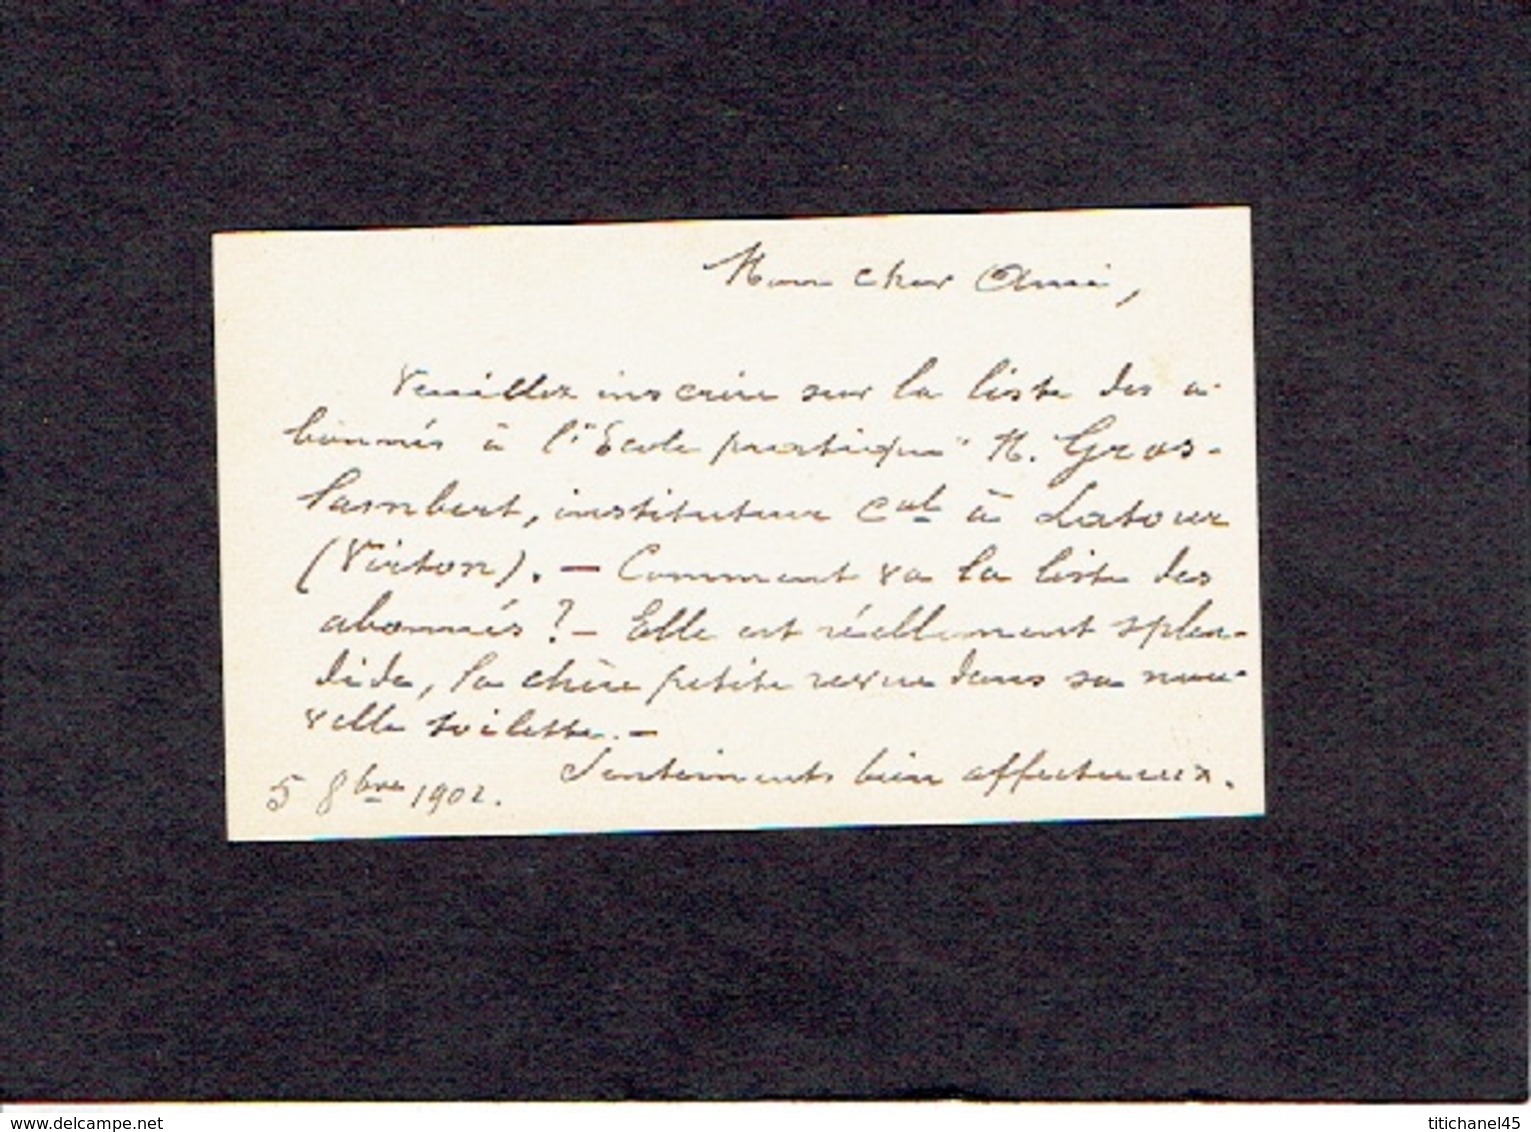 Mon cher Ami,
Veuillez inscrire sur la liste des a-
bonnés à l'"Ecole pratique" M. Gros-
lambert, instituteur cal à Latour
(Virton). — Comment va la liste des
abonnés ? — Elle est réellement splen-
dide, la chère petite revue dans sa nou-
velle toilette. —
Sentiments bien affectueux.
5 8bre 1902.
www.delcampe.net
titichanel45